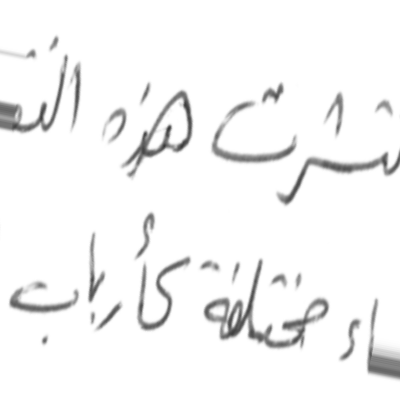 نتشرت هذه الن
اء مختلفة كأرباب